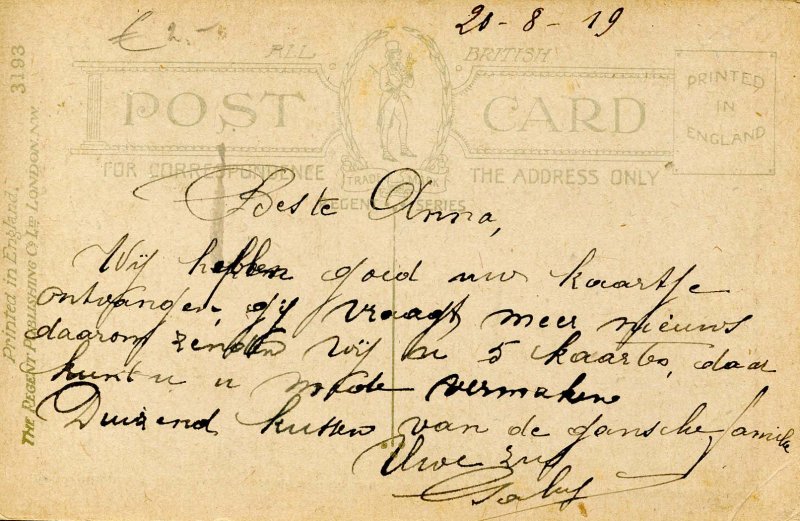 20-8-19
€ 2.-
ALL BRITISH
POST CARD
PRINTED
IN
ENGLAND
FOR CORRESPONDENCE THE ADDRESS ONLY
TRADE MARK
REGENT SERIES
Beste Anna,
Wij hebben goed uw kaartje
ontvangen, gij vraagt meer nieuws
daarom zenden wij u 5 kaarten, daar
kunt u u mede vermaken
Duizend kussen van de gansche familie
Uwe zus
Gaby
3193
Printed in England.
THE REGENT PUBLISHING CO LTD LONDON. N.W.